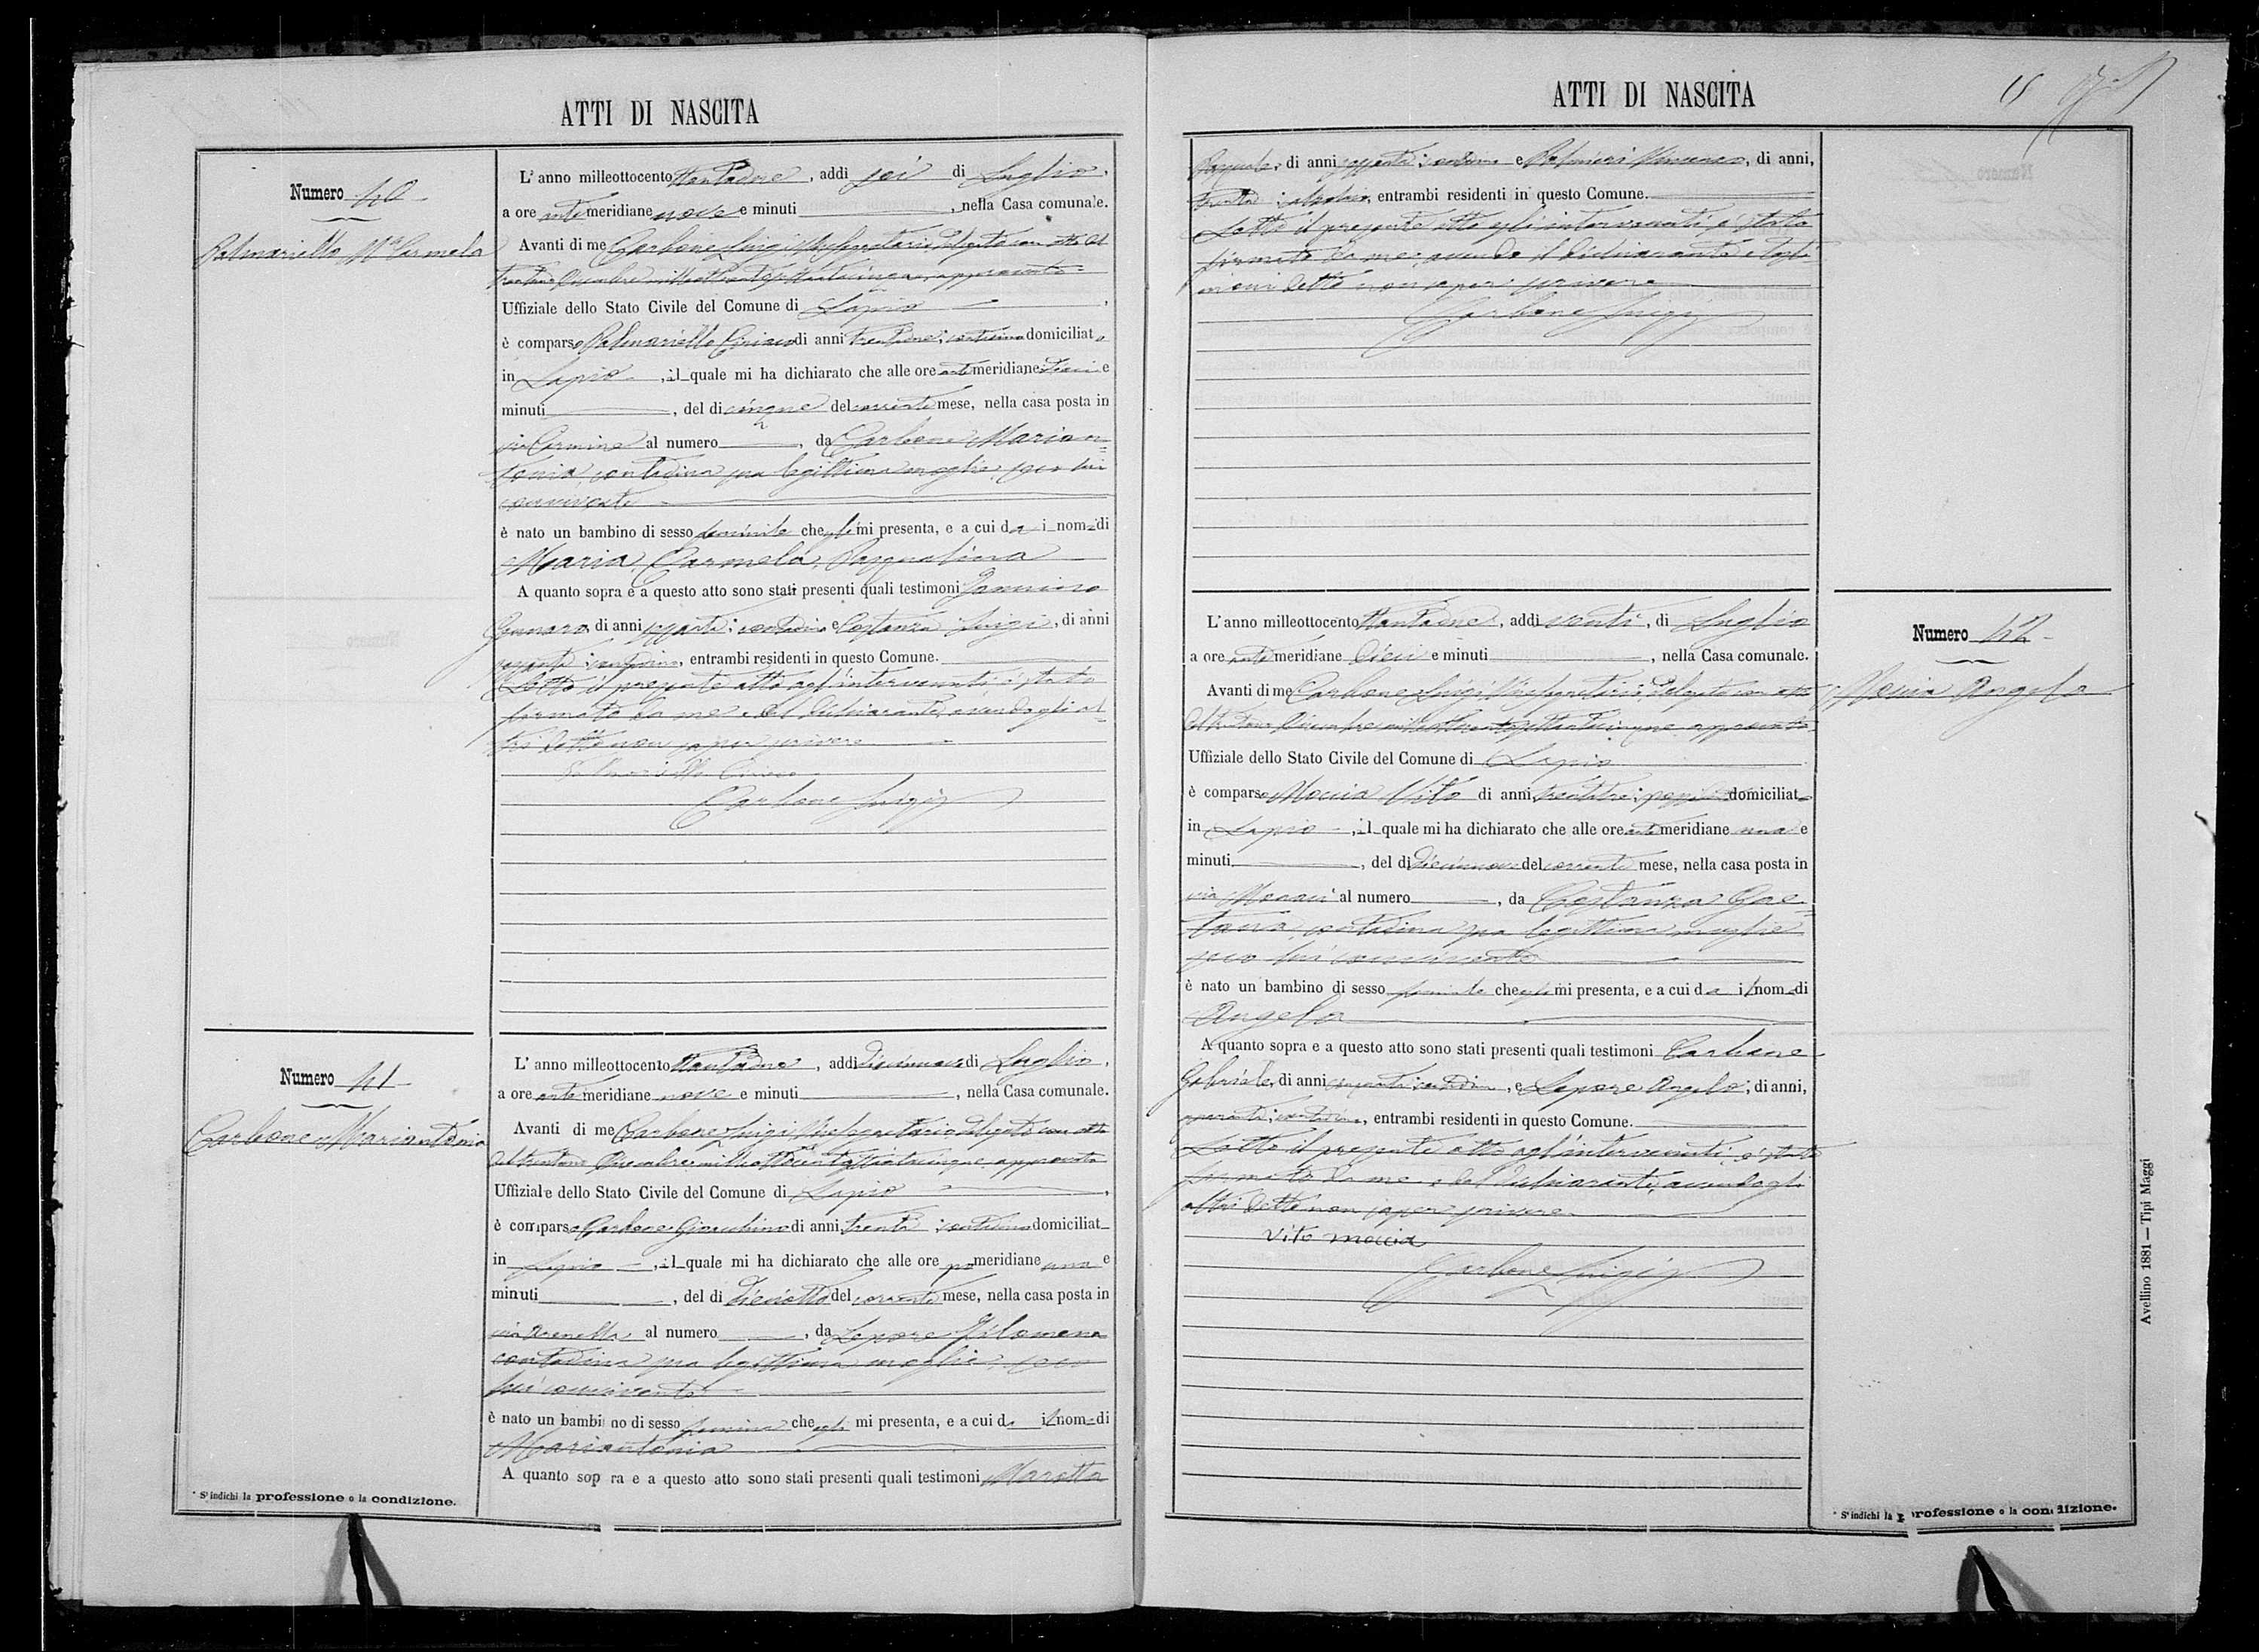 ATTI DI NASCITA
Numero 40
Palmariello Mª Carmela
L'anno milleottocento ottantadue, addì sei di Luglio,
a ore ante meridiane nove e minuti , nella Casa comunale.
Avanti di me Carbone Luigi Vicesegretario delegato con atto del
trentuno Dicembre milleottocentosettantacinque, approvato
Uffiziale dello Stato Civile del Comune di Lapio
è comparso Palmariello Ciriaco di anni trentadue; contadino domiciliato
in Lapio, il quale mi ha dichiarato che alle ore antemeridiane dieci e
minuti , del dì cinque del corrente mese, nella casa posta in
via Carmine al numero , da Carbone Marian-
tonia, contadina sua legittima moglie, seco lui
convivente
è nato un bambino di sesso feminile che egli mi presenta, e a cui da i nomi di
Maria, Carmela, Pasqualina
A quanto sopra e a questo atto sono stati presenti quali testimoni
Gennaro, di anni sessanta; contadino e Costanza Luigi, di anni
contadino, entrambi residenti in questo Comune.
Letto il presente atto agl'intervenuti, è stato
firmato da me e dal dichiarante, avendo gli al-
tri detto non saper scrivere
Palmariello Ciriaco
Carbone Luigi
Numero 41
Carbone Mariantonia
L'anno milleottocento ottantadue, addì diecinnove di Luglio,
a ore ante meridiane nove e minuti , nella Casa comunale.
Avanti di me Carbone Luigi Vicesegretario delegato con atto
del trentuno Dicembre milleottocentosettantacinque, approvato
Uffiziale dello Stato Civile del Comune di Lapio
è comparso Carbone Gioacchino di anni trenta; contadino domiciliat
in Lapio, il quale mi ha dichiarato che alle ore pomeridiane una e
minuti , del dì dieciotto del corrente mese, nella casa posta in
via Arenella al numero , da Lepore Filomena
contadina sua legittima moglie, seco
lui convivente
è nato un bambino di sesso feminino che egli mi presenta, e a cui da il nome di
Mariantonia
A quanto sopra e a questo atto sono stati presenti quali testimoni Marotta
* S'indichi la professione o la condizione.
ATTI DI NASCITA
Pasquale, di anni sessanta; contadino e Palmieri Vincenzo, di anni,
trenta; entrambi residenti in questo Comune.
Letto il presente atto agli intervenuti, è stato
firmato da me, avendo il dichiarante e testi-
moni detto non saper scrivere
Carbone Luigi
Numero 42
Moccia Angela
L'anno milleottocento ottantadue, addì venti, di Luglio
a ore ante meridiane dieci e minuti , nella Casa comunale.
Avanti di me Carbone Luigi Vicesegretario delegato con atto
del trentuno Dicembre milleottocentosettantacinque approvato
Uffiziale dello Stato Civile del Comune di Lapio
è comparso Moccia Vito di anni trentatre; domiciliato
in Lapio, il quale mi ha dichiarato che alle ore antemeridiane una e
minuti , del dì diecinnove del corrente mese, nella casa posta in
via al numero , da Costanza Gae-
tana, contadina sua legittima moglie
seco lui convivente
è nato un bambino di sesso feminile che egli mi presenta, e a cui da il nome di
Angela
A quanto sopra e a questo atto sono stati presenti quali testimoni Carbone
Gabriele, di anni contadino, e Lepore Angelo, di anni,
contadino, entrambi residenti in questo Comune.
Letto il presente atto agl'intervenuti, è stato
firmato da me e dal dichiarante, avendo gli
altri detto non sapere scrivere
Vito moccia
Carbone Luigi
Avellino 1881 — Tipi Maggi
* S'indichi la professione o la condizione.